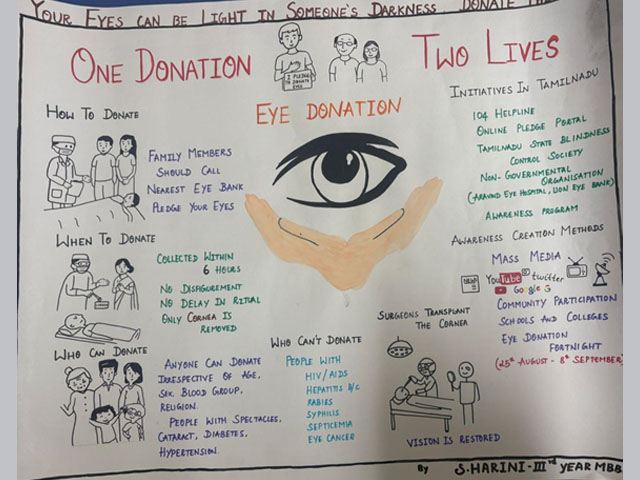 YOUR EYES CAN BE LIGHT IN SOMEONE'S DARKNESS DONATE
ONE DONATION
TWO LIVES
I PLEDGE
TO DONATE
EYES
EYE DONATION
HOW TO DONATE
FAMILY MEMBERS
SHOULD CALL
NEAREST EYE BANK
PLEDGE YOUR EYES
WHEN TO DONATE
COLLECTED WITHIN
6 HOURS
NO DISFIGUREMENT
NO DELAY IN RITUAL
ONLY CORNEA IS
REMOVED
WHO CAN DONATE
ANYONE CAN DONATE
IRRESPECTIVE OF AGE,
SEX, BLOOD GROUP,
RELIGION.
PEOPLE WITH SPECTACLES,
CATARACT, DIABETES,
HYPERTENSION.
WHO CAN'T DONATE
PEOPLE WITH
HIV/AIDS
HEPATITIS B/C
RABIES
SYPHILIS
SEPTICEMIA
EYE CANCER
INITIATIVES IN TAMILNADU
104 HELPLINE
ONLINE PLEDGE PORTAL
TAMILNADU STATE BLINDNESS
CONTROL SOCIETY
NON-GOVERNMENTAL
ORGANISATION
(ARAVIND EYE HOSPITAL, LION EYE BANK)
AWARENESS PROGRAM
AWARENESS CREATION METHODS
MASS MEDIA
YouTube twitter
Google G
COMMUNITY PARTICIPATION
SCHOOLS AND COLLEGES
EYE DONATION
FORTNIGHT
(25th AUGUST - 8th SEPTEMBER)
SURGEONS TRANSPLANT
THE CORNEA
VISION IS RESTORED
By S.HARINI-IIIrd YEAR MBB